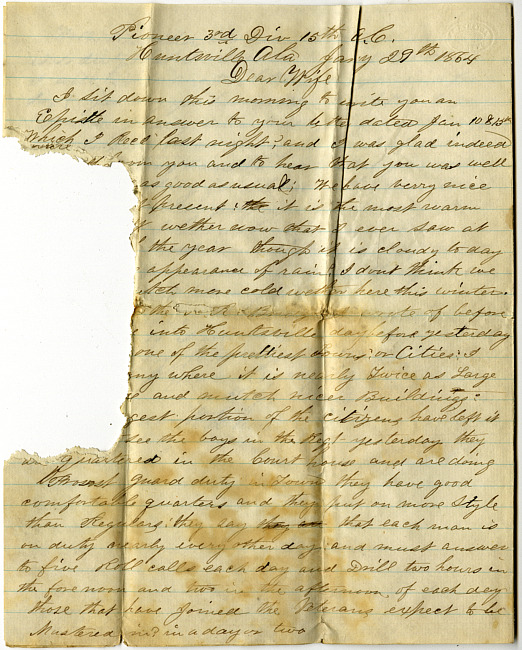 Pioneer 3rd Div 15th A.C.
Huntsville Ala Jany 29th 1864
Dear Wife
I sit down this morning to write you an
Epistle in answer to your letter dated Jan 10 & 15th
Which I Recd last night and I was glad indeed
from you and to hear that you was well
as good as usual; We have verry nice
present: it is the most warm
wether now that I ever saw at
the year though it is cloudy to day
appearance of rain I dont think we
mutch more cold wether here this winter
the of before
into Huntsville day before yesterday
one of the prettiest towns or Cities I
any where it is nearly Twice as Large
and mutch nicer Buildings:
portion of the citizens have left it
see the boys in the Regt yesterday they
are quartered in the Court house and are doing
guard duty in Town they have good
comfortable quarters and they put on more Style
than Regulars: they say that each man is
on duty nearly every other day and must answer
to five Roll calls each day and Drill two hours in
the forenoon and two in the afternoon of each day
those that have Joined the Veterans expect to be
Mustered in in a day or two